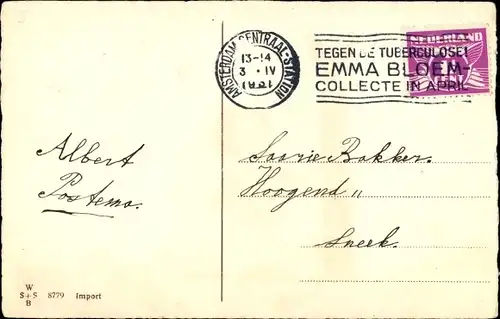 AMSTERDAM CENTRAAL-STATION
13-14
3 IV
TEGEN DE TUBERCULOSE!
EMMA BLOEM-
COLLECTE IN APRIL
NEDERLAND
Albert
Postema.
Saarie Bakker.
Hoogend"
Sneek.
W
S+S 8779 Import
B